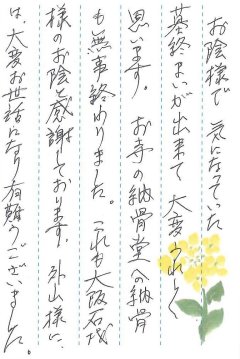 お陰様で 気になっていた
墓終まいが出来て 大変うれしく
思います。 お寺の納骨堂への納骨
も無事終わりました。 これも大阪石材
様のお陰と感謝しております。外山様に
は、大変お世話になり有難うございました。